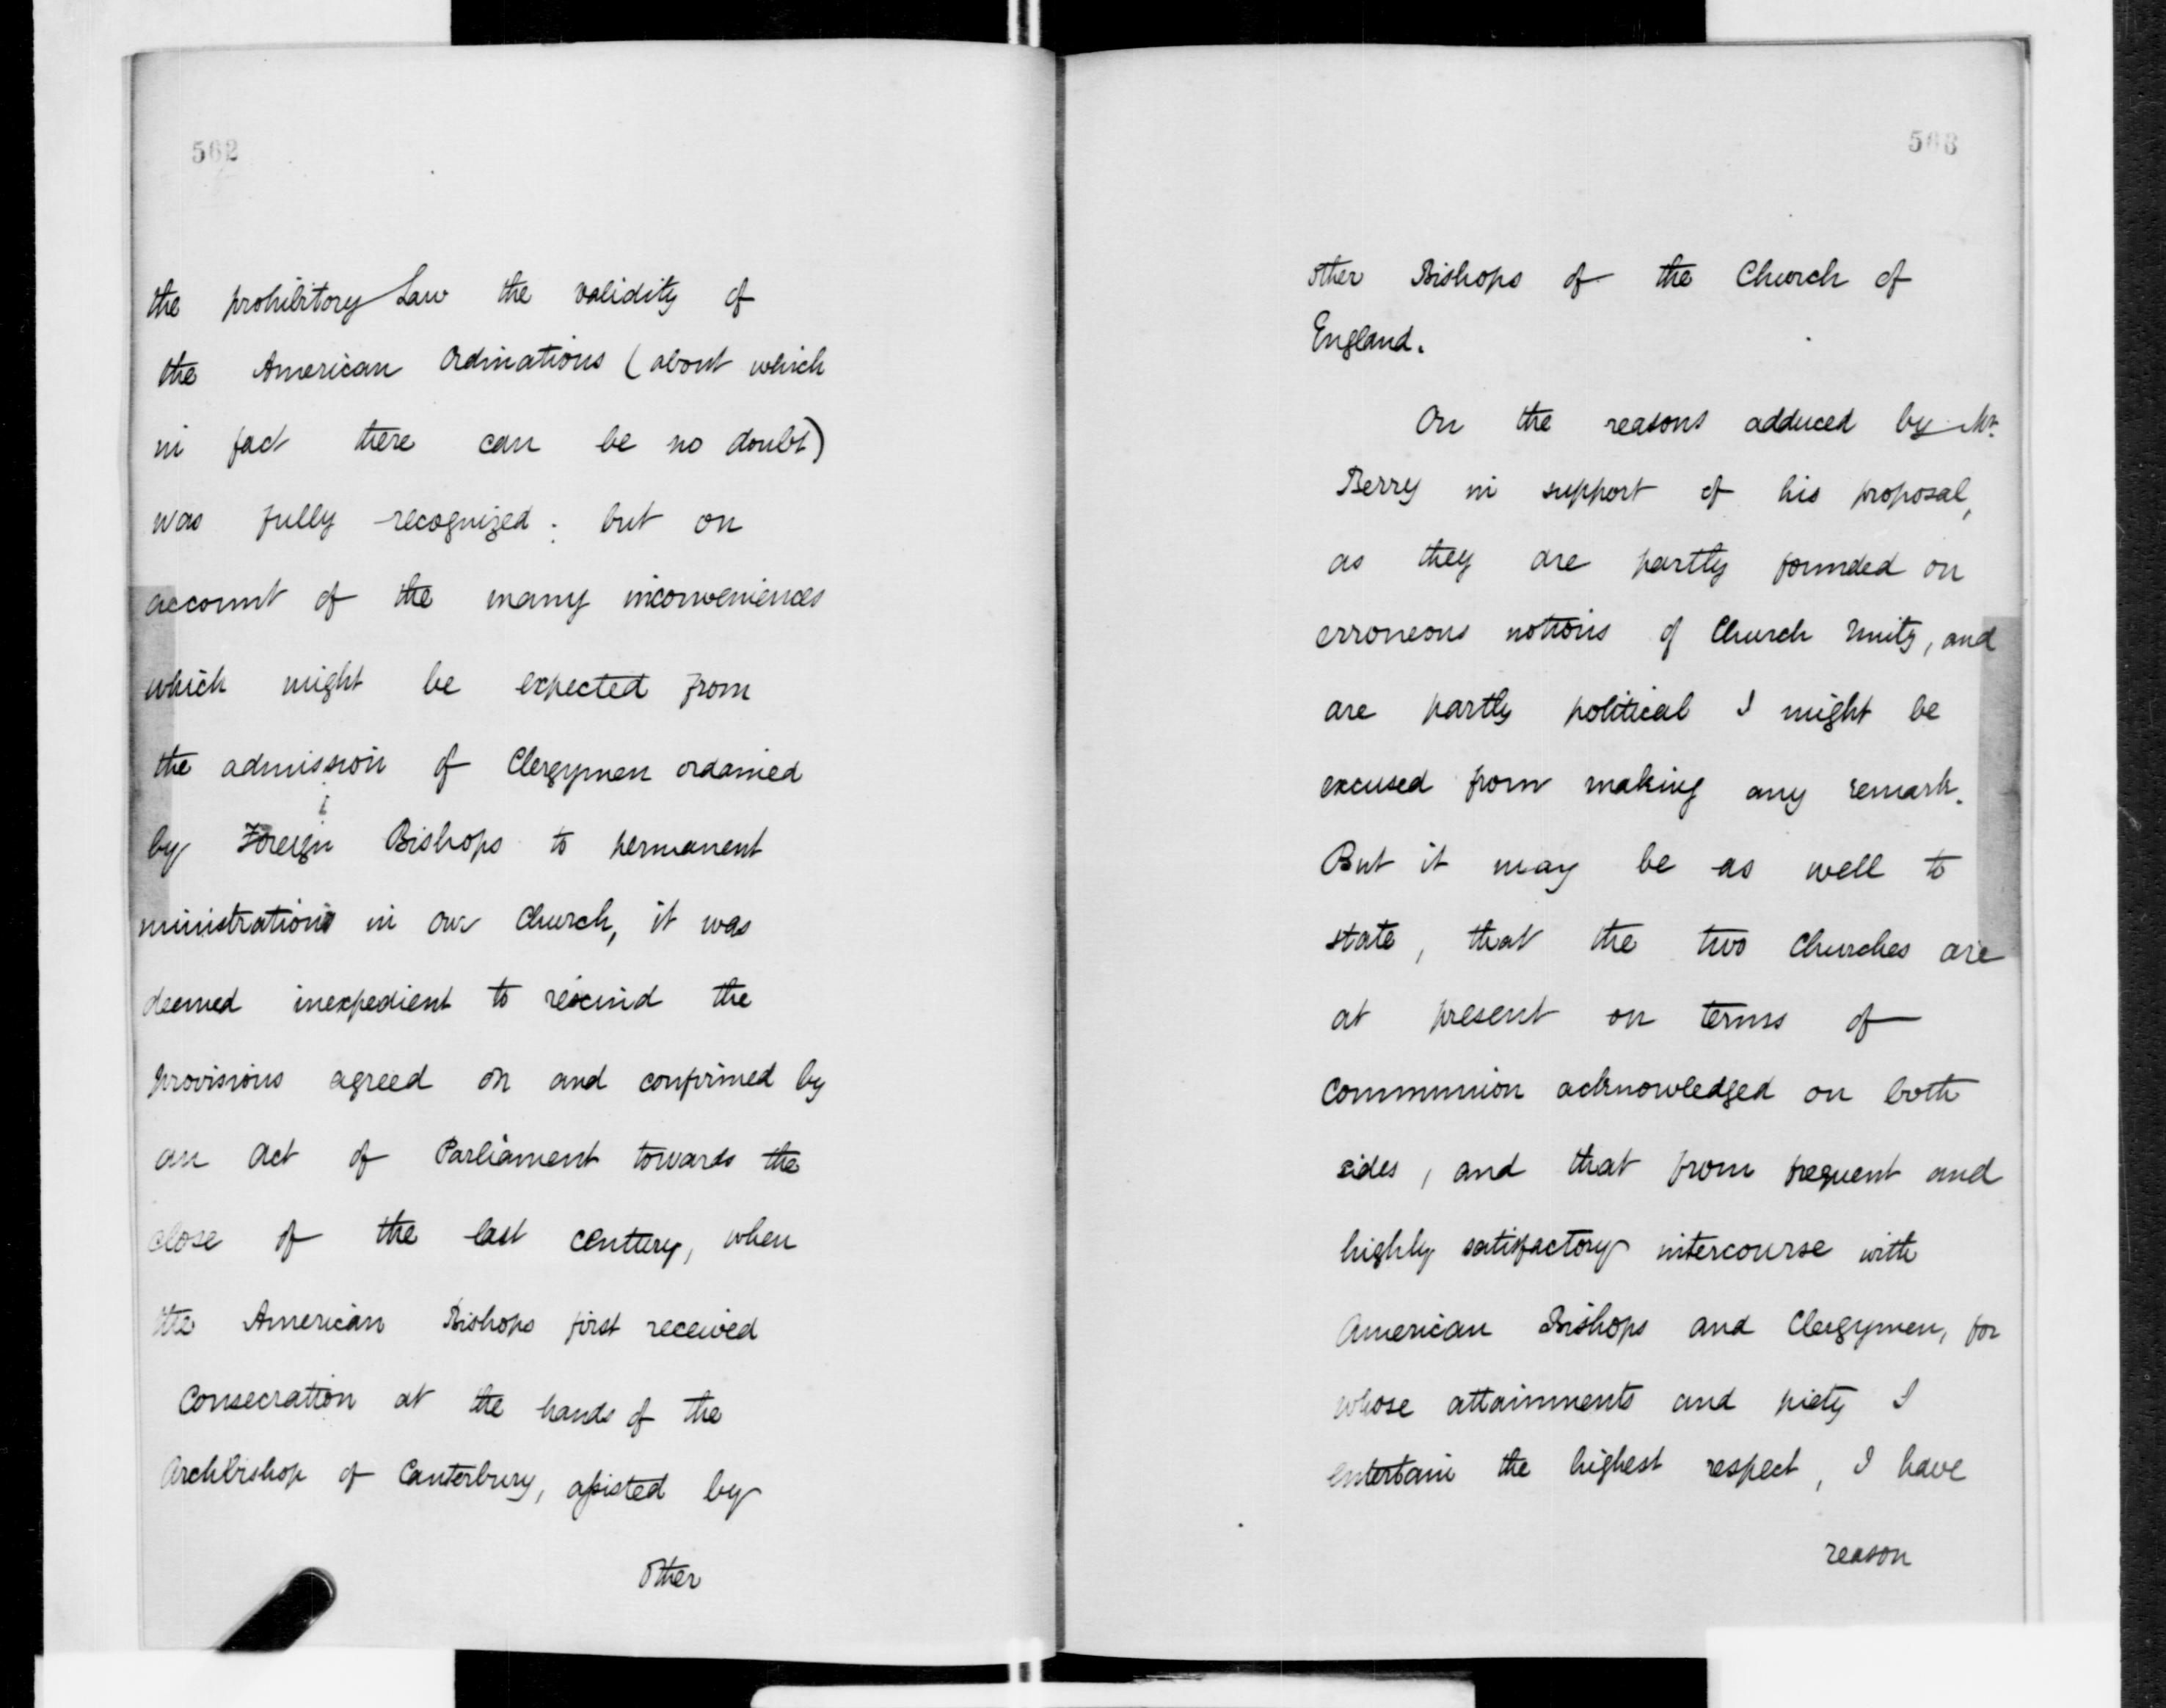 562
the prohibitory Law the validity of
the American Ordinations (about which
in fact there can be no doubt)
was fully recognized; but on
account of the many inconveniences
which might be expected from
the admission of Clergymen ordained
by Foreign Bishops to permanent
ministrations in our Church, it was
deemed inexpedient to rescind the
provisions agreed on and confirmed by
an Act of Parliament towards the
close of the last century, when
the American Bishops first received
Consecration at the hands of the
Archbishop of Canterbury, assisted by
other
563
other Bishops of the Church of
England.
On the reasons adduced by Mr.
Berry in support of his proposal,
as they are partly founded on
erroneous notions of Church Unity, and
are partly political I might be
excused from making any remark.
But it may be as well to
state, that the two Churches are
at present on terms of
Communion acknowledged on both
sides, and that from frequent and
highly satisfactory intercourse with
American Bishops and Clergymen, for
whose attainments and piety I
entertain the highest respect, I have
reason